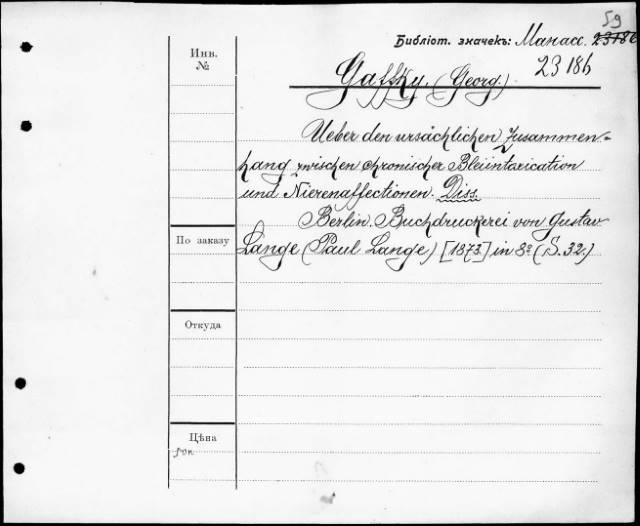 59
Библіот. значекъ: Манасс. 23186
23186
Инв.
№
Gaffky. (Georg.)
Ueber den ursächlichen Zusammen-
hang zwischen chronischer Bleiintoxication
und Nierenaffectionen. Diss.
Berlin. Buchdruckerei von Gustav
Lange (Paul Lange) [1873] in 8º (S. 32.)
По заказу
Откуда
Цѣна